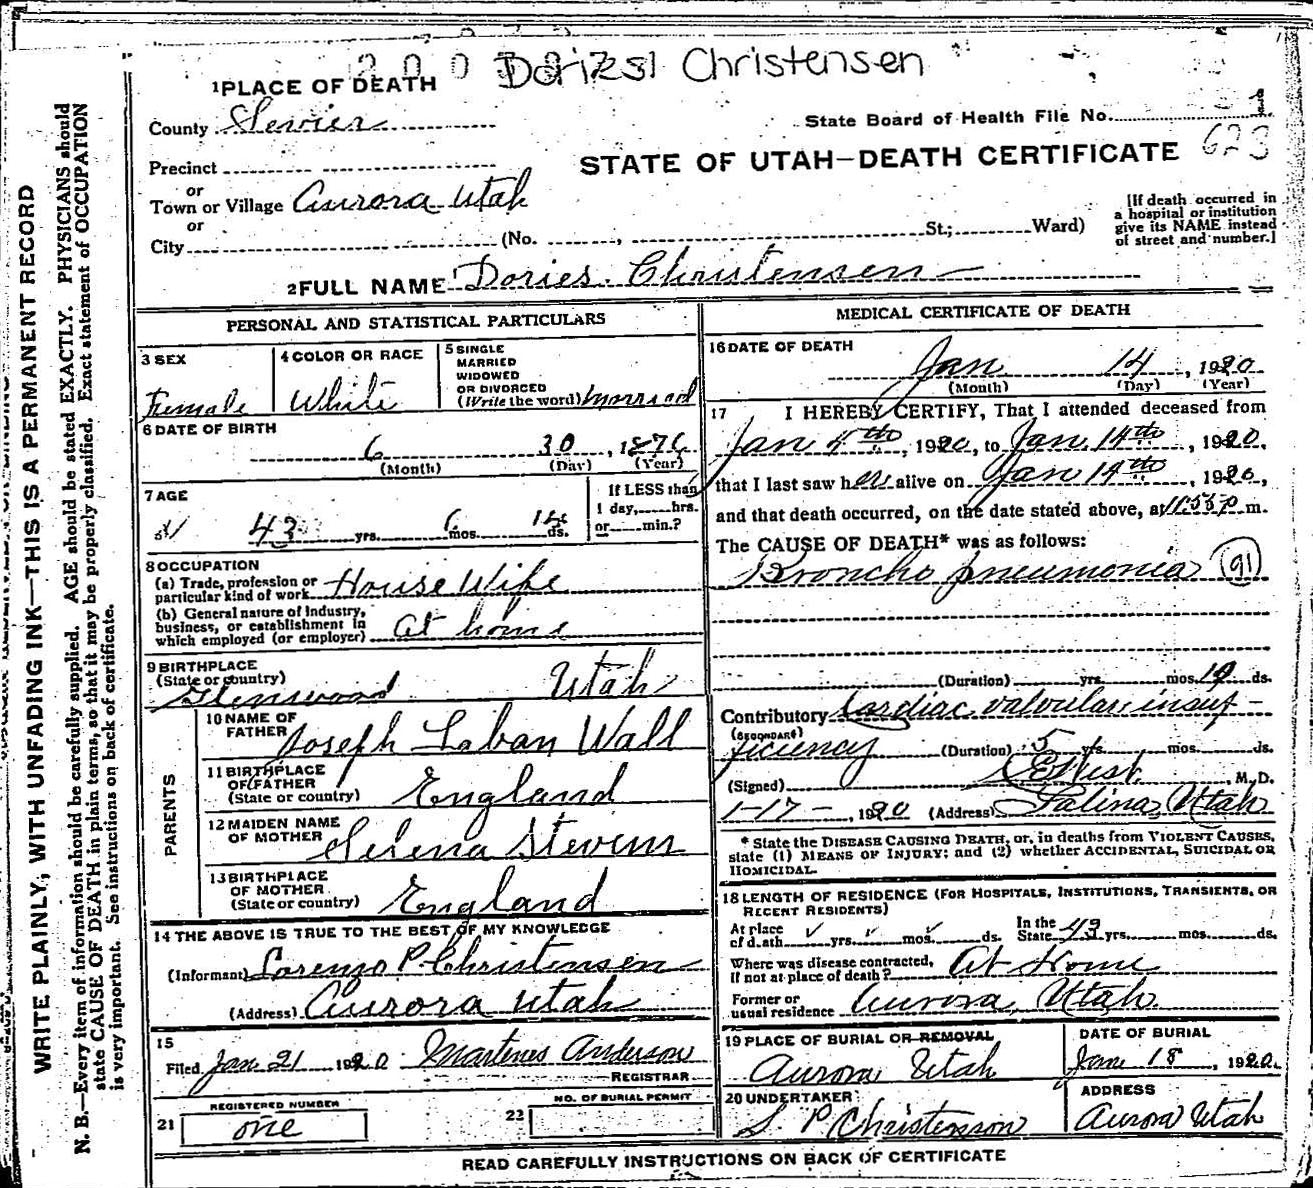 Christensen
1 PLACE OF DEATH
County Sevier
State Board of Health File No. 1
623
STATE OF UTAH—DEATH CERTIFICATE
Precinct
or
Town or Village Aurora Utah
or
City (No. , St.; Ward)
[If death occurred in
a hospital or institution
give its NAME instead
of street and number.]
2 FULL NAME Dories Christensen
PERSONAL AND STATISTICAL PARTICULARS
3 SEX
Female
4 COLOR OR RACE
White
5 SINGLE
MARRIED
WIDOWED
OR DIVORCED
(Write the word) Married
6 DATE OF BIRTH
6 30, 1876
(Month) (Day) (Year)
7 AGE
43 yrs. 6 mos. 14 ds.
If LESS than
1 day, hrs.
or min.?
8 OCCUPATION
(a) Trade, profession or
particular kind of work House Wife
(b) General nature of Industry,
business, or establishment in
which employed (or employer) At home
9 BIRTHPLACE
(State or country)
Glenwood Utah
PARENTS
10 NAME OF
FATHER Joseph Laban Wall
11 BIRTHPLACE
OF FATHER
(State or country) England
12 MAIDEN NAME
OF MOTHER Selena Stevens
13 BIRTHPLACE
OF MOTHER
(State or country) England
14 THE ABOVE IS TRUE TO THE BEST OF MY KNOWLEDGE
(Informant) Lorenzo P. Christensen
(Address) Aurora Utah
15
Filed Jan 21 1920 Martines Anderson
REGISTRAR
21
REGISTERED NUMBER
one
22
NO. OF BURIAL PERMIT
MEDICAL CERTIFICATE OF DEATH
16 DATE OF DEATH
Jan 14, 1920
(Month) (Day) (Year)
17 I HEREBY CERTIFY, That I attended deceased from
Jan 4th, 1920, to Jan. 14th, 1920,
that I last saw her alive on Jan 14th, 1920,
and that death occurred, on the date stated above, at 11:55 p m.
The CAUSE OF DEATH* was as follows:
Broncho pneumonia 91
(Duration) yrs. mos. 10 ds.
Contributory Cardiac valvular insuf-
(SECONDARY)
ficiency (Duration) 5 yrs. mos. ds.
(Signed) West M.D.
1-17-, 1920 (Address) Salina, Utah
* State the DISEASE CAUSING DEATH, or, in deaths from VIOLENT CAUSES,
state (1) MEANS OF INJURY; and (2) whether ACCIDENTAL, SUICIDAL OR
HOMICIDAL.
18 LENGTH OF RESIDENCE (FOR HOSPITALS, INSTITUTIONS, TRANSIENTS, OR
RECENT RESIDENTS)
At place
of death yrs. mos. ds.
In the
State 43 yrs. mos. ds.
Where was disease contracted,
If not at place of death? At Home
Former or
usual residence Aurora, Utah
19 PLACE OF BURIAL OR REMOVAL
Aurora Utah
DATE OF BURIAL
Jan. 18, 1920.
20 UNDERTAKER
S P Christenson
ADDRESS
Aurora Utah
READ CAREFULLY INSTRUCTIONS ON BACK OF CERTIFICATE
WRITE PLAINLY, WITH UNFADING INK—THIS IS A PERMANENT RECORD
N. B.—Every item of information should be carefully supplied. AGE should be stated EXACTLY. PHYSICIANS should
state CAUSE OF DEATH in plain terms, so that it may be properly classified. Exact statement of OCCUPATION
is very important. See instructions on back of certificate.